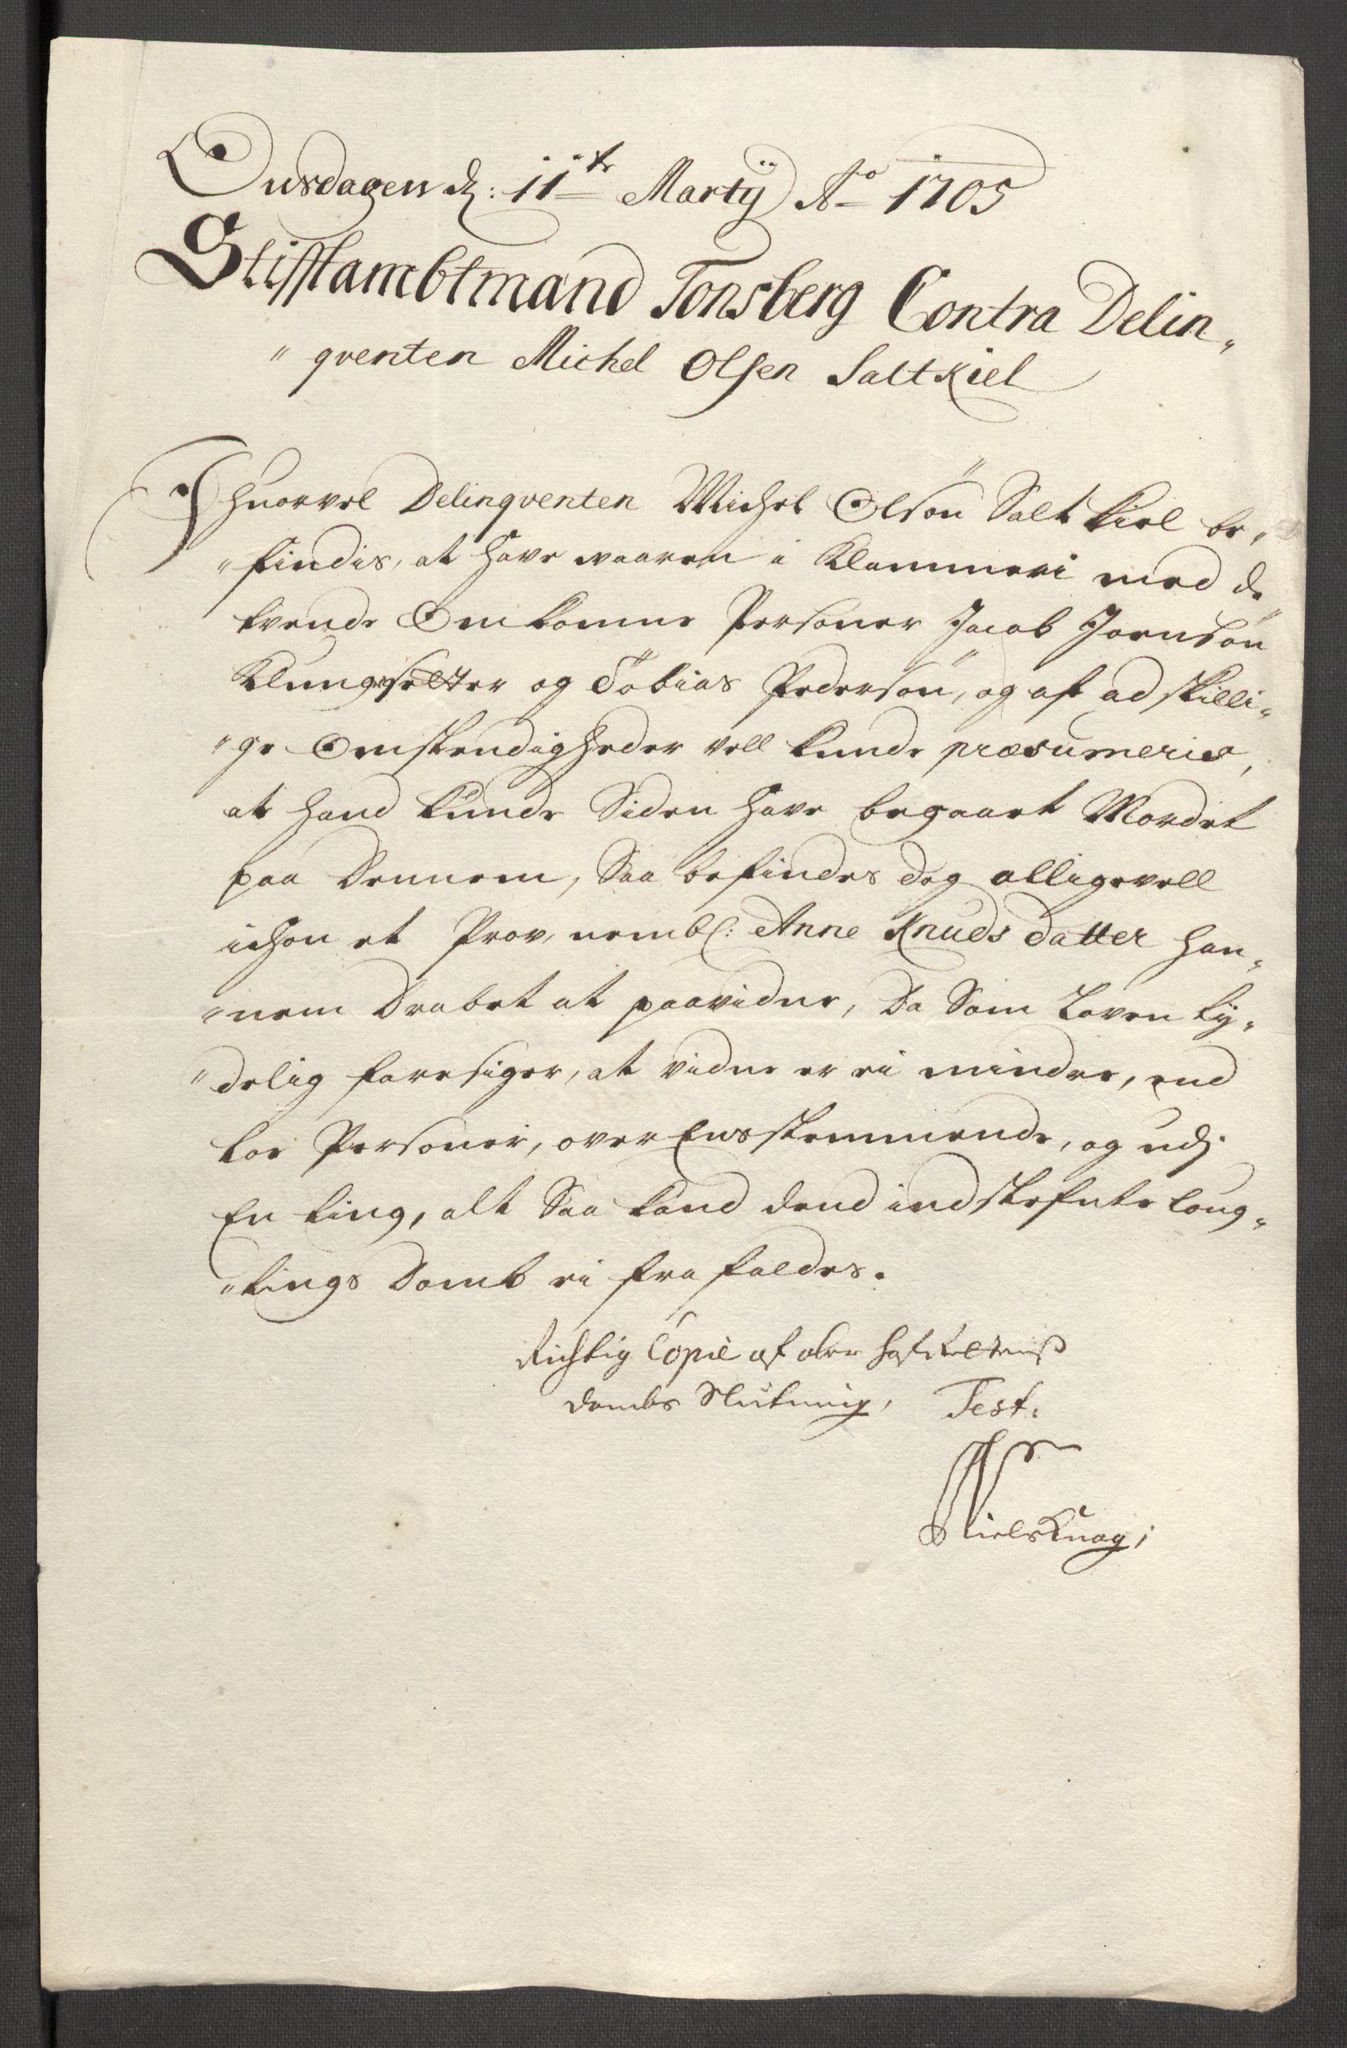 Onsdagen d: 11te Martij Ao 1705
Stifftambtmand Tonsberg Contra Delin„
„qventen Michel Olsen Saltkiel
Ihuorvel Delinqventen Michel Olsøn Saltkiel be„
„findis, at have vaaren i Klammeri med de
tvende Omkomne Personer Jacob Joensøn
Klungseltter og Tobias Pedersøn, og af adskilli„
„ge Omstendigheder vell kunde præsumeris,
at hand kunde Siden have begaaet Mordet
paa Dennem, Saa befindes dog alligevell
ichon et Prov, nembl: Anne Knuds datter han„
„nem Drabet at paavidne, Da Som Loven ty„
„delig foresiger, at vidne er ei mindre, end
toe Personer, over Eensstemmende, og udj
En ting, alt Saa kand dend indstefnte laug„
„tings Domb ei fra faldes.
Richtig Copie af ober hof Rettens
dombs Slutning, Test.
Niels Knag;